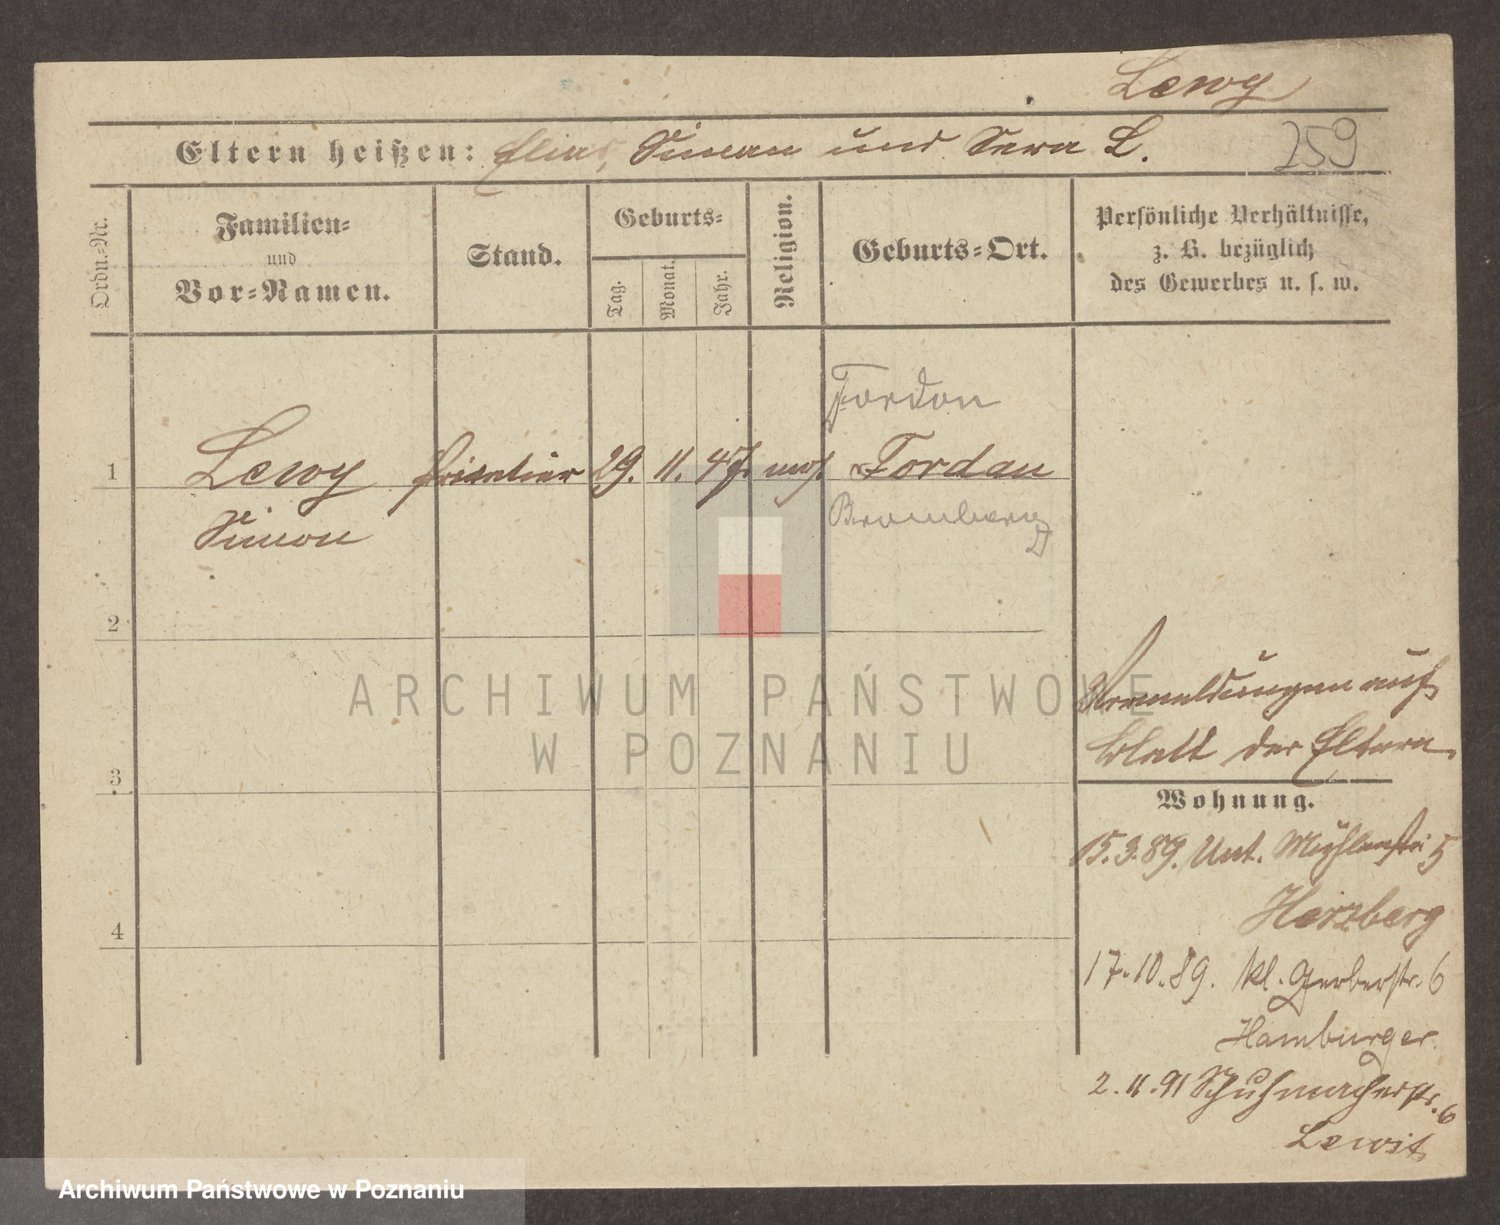 Lewy
259
Eltern heißen: Elias, Simon und Sara L.
Ordn.-Nr.
Familien-
und
Vor-Namen.
Stand.
Geburts-
Tag.
Monat.
Jahr.
Religion.
Geburts-Ort.
Persönliche Verhältnisse,
z. B. bezüglich
des Gewerbes u. s. w.
Fordon
1 Lewy 29. 11. 47. mos. Fordon
Simon
Bromberg
2
3
4
Anmeldungen auf
Blatt der Eltern
Wohnung.
15.3.89. Unt. Mühlenstr 5
Herzberg
17.10.89. Kl. Gerberstr. 6
Hamburger.
2.11.91 Schuhmacherstr. 6
Lewit
ARCHIWUM PAŃSTWOWE
W POZNANIU
Archiwum Państwowe w Poznaniu